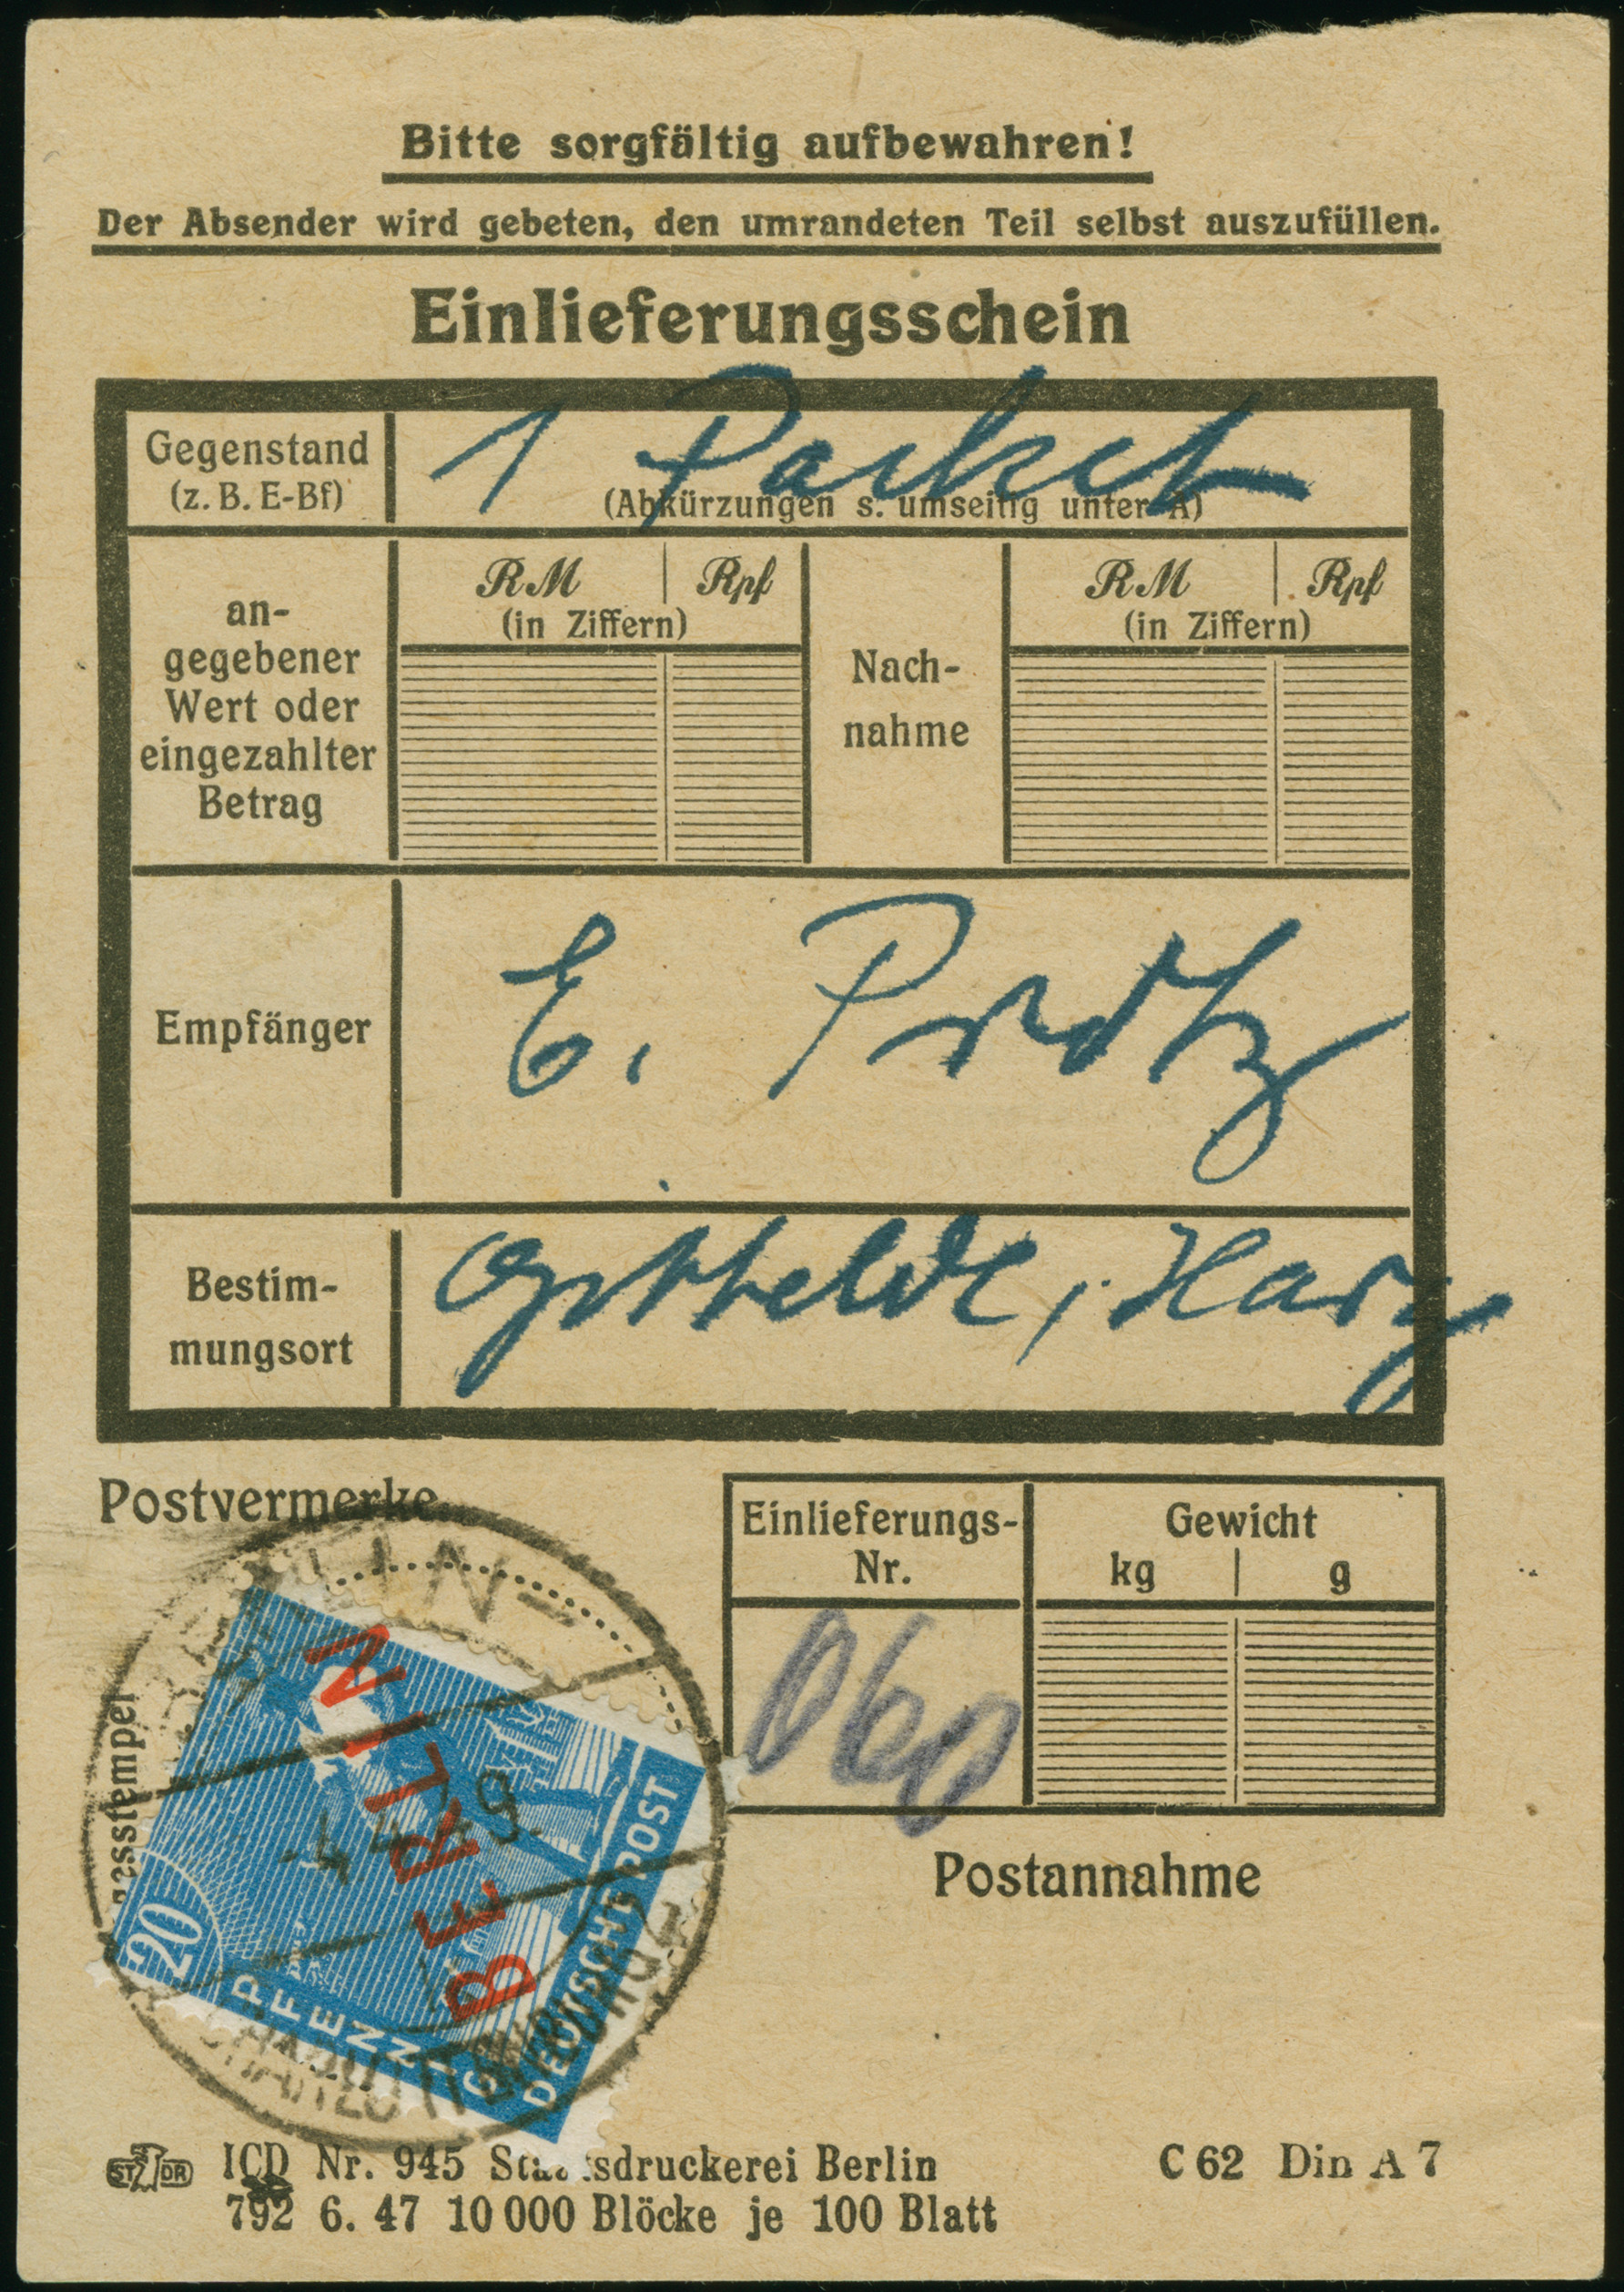 Bitte sorgfältig aufbewahren!
Der Absender wird gebeten, den umrandeten Teil selbst auszufüllen.
Einlieferungsschein
Gegenstand
(z. B. E-Bf)
1 Packet
(Abkürzungen s. umseitig unter A)
an-
gegebener
Wert oder
eingezahlter
Betrag
RM | Rpf
(in Ziffern)
Nach-
nahme
RM | Rpf
(in Ziffern)
Empfänger
E. Protz
Bestim-
mungsort
Gittelde, Harz
Postvermerke
Einlieferungs-
Nr.
060
Gewicht
kg | g
BERLIN-
CHARLOTTENBURG
BERLIN
20
PFENNIG
DEUTSCHE POST
Postannahme
STDR
ICD Nr. 945 Staatsdruckerei Berlin
792 6. 47 10 000 Blöcke je 100 Blatt
C 62 Din A 7